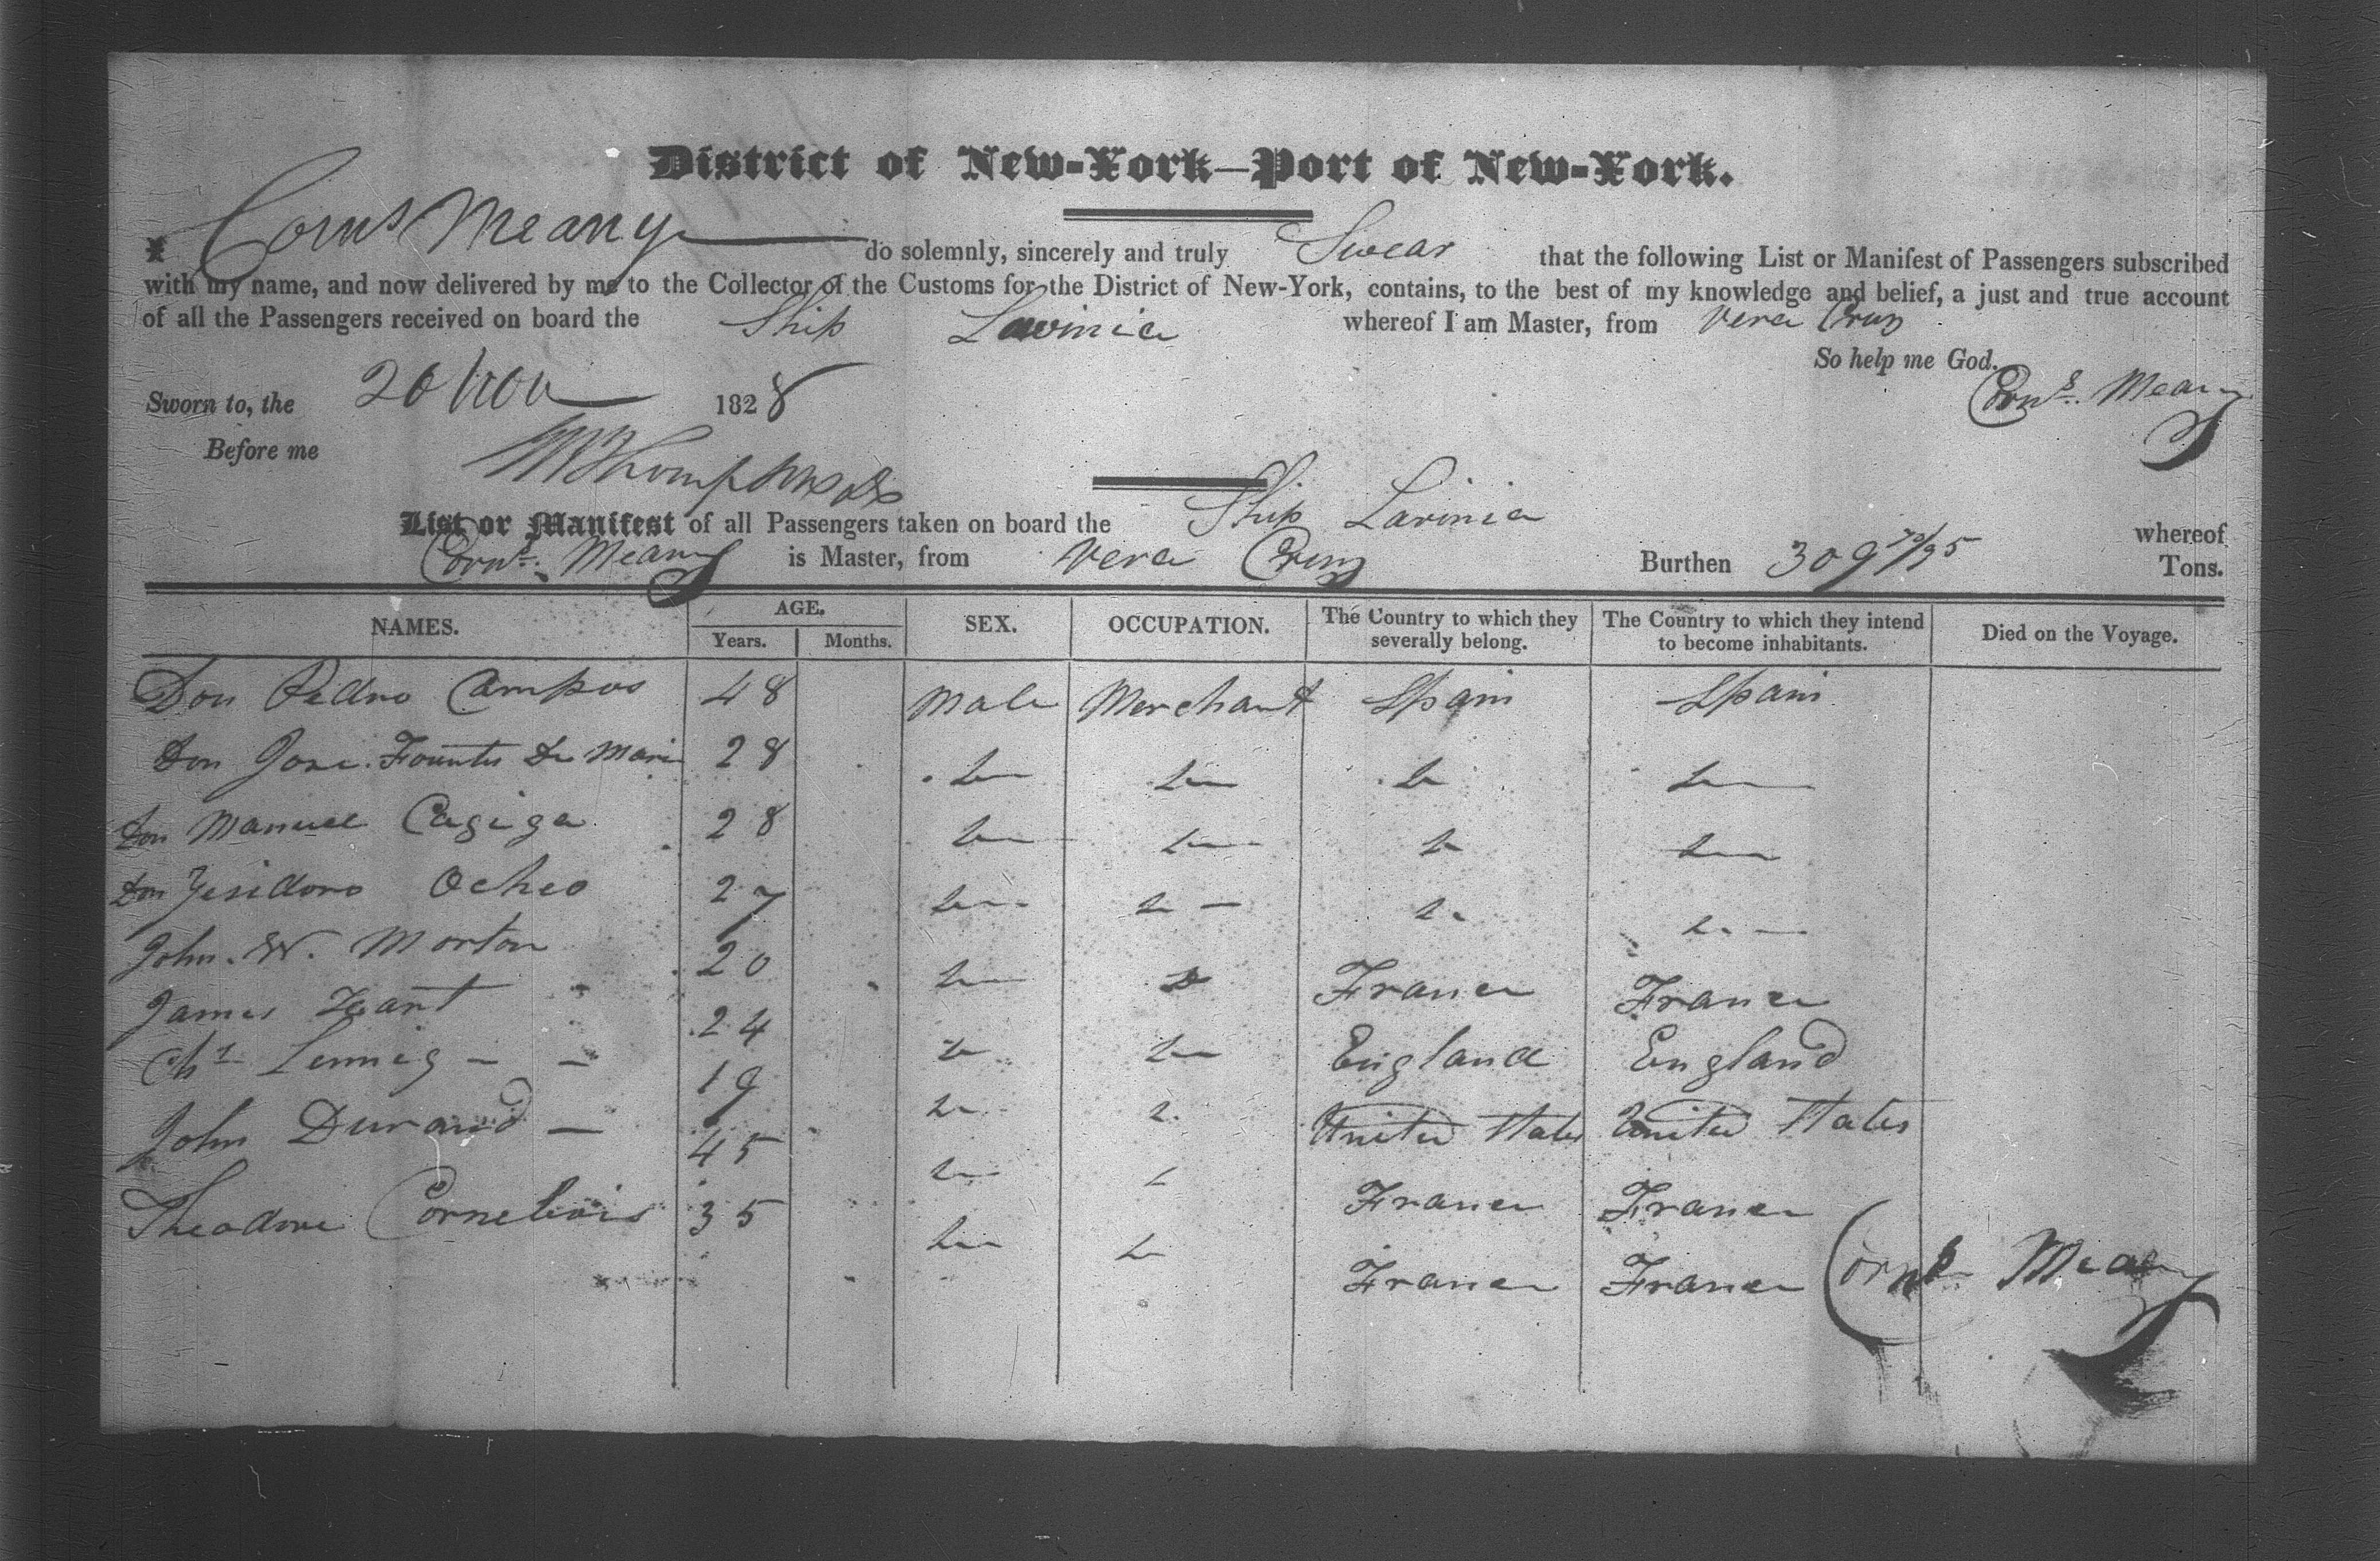 District of New-York—Port of New-York.
I Corns Meany do solemnly, sincerely and truly Swear that the following List or Manifest of Passengers subscribed
with my name, and now delivered by me to the Collector of the Customs for the District of New-York, contains, to the best of my knowledge and belief, a just and true account
of all the Passengers received on board the Ship Lavinia whereof I am Master, from Vera Cruz
So help me God.
Sworn to, the 20 Nov 1828 Corns. Meany
Before me
List or Manifest of all Passengers taken on board the Ship Lavinia whereof
Corns. Meany is Master, from Vera Cruz Burthen 309 70/95 Tons.
NAMES. AGE. Years. Months. SEX. OCCUPATION. The Country to which they severally belong. The Country to which they intend to become inhabitants. Died on the Voyage.
Don Pedro Campos 48 Male Merchant Spain Spain
Don Jose Fountes De Mari 28 do do do do
Don Manuel Cagiga 28 do do do do
Don Yesidoro Ocheo 27 do do do do
John. W. Morton 20 do do France France
James 24 do do England England
Chs Lennig 19 do do United States United States
John Durand 45 do do France France
Theodore 35 do do France France
Corns Meany